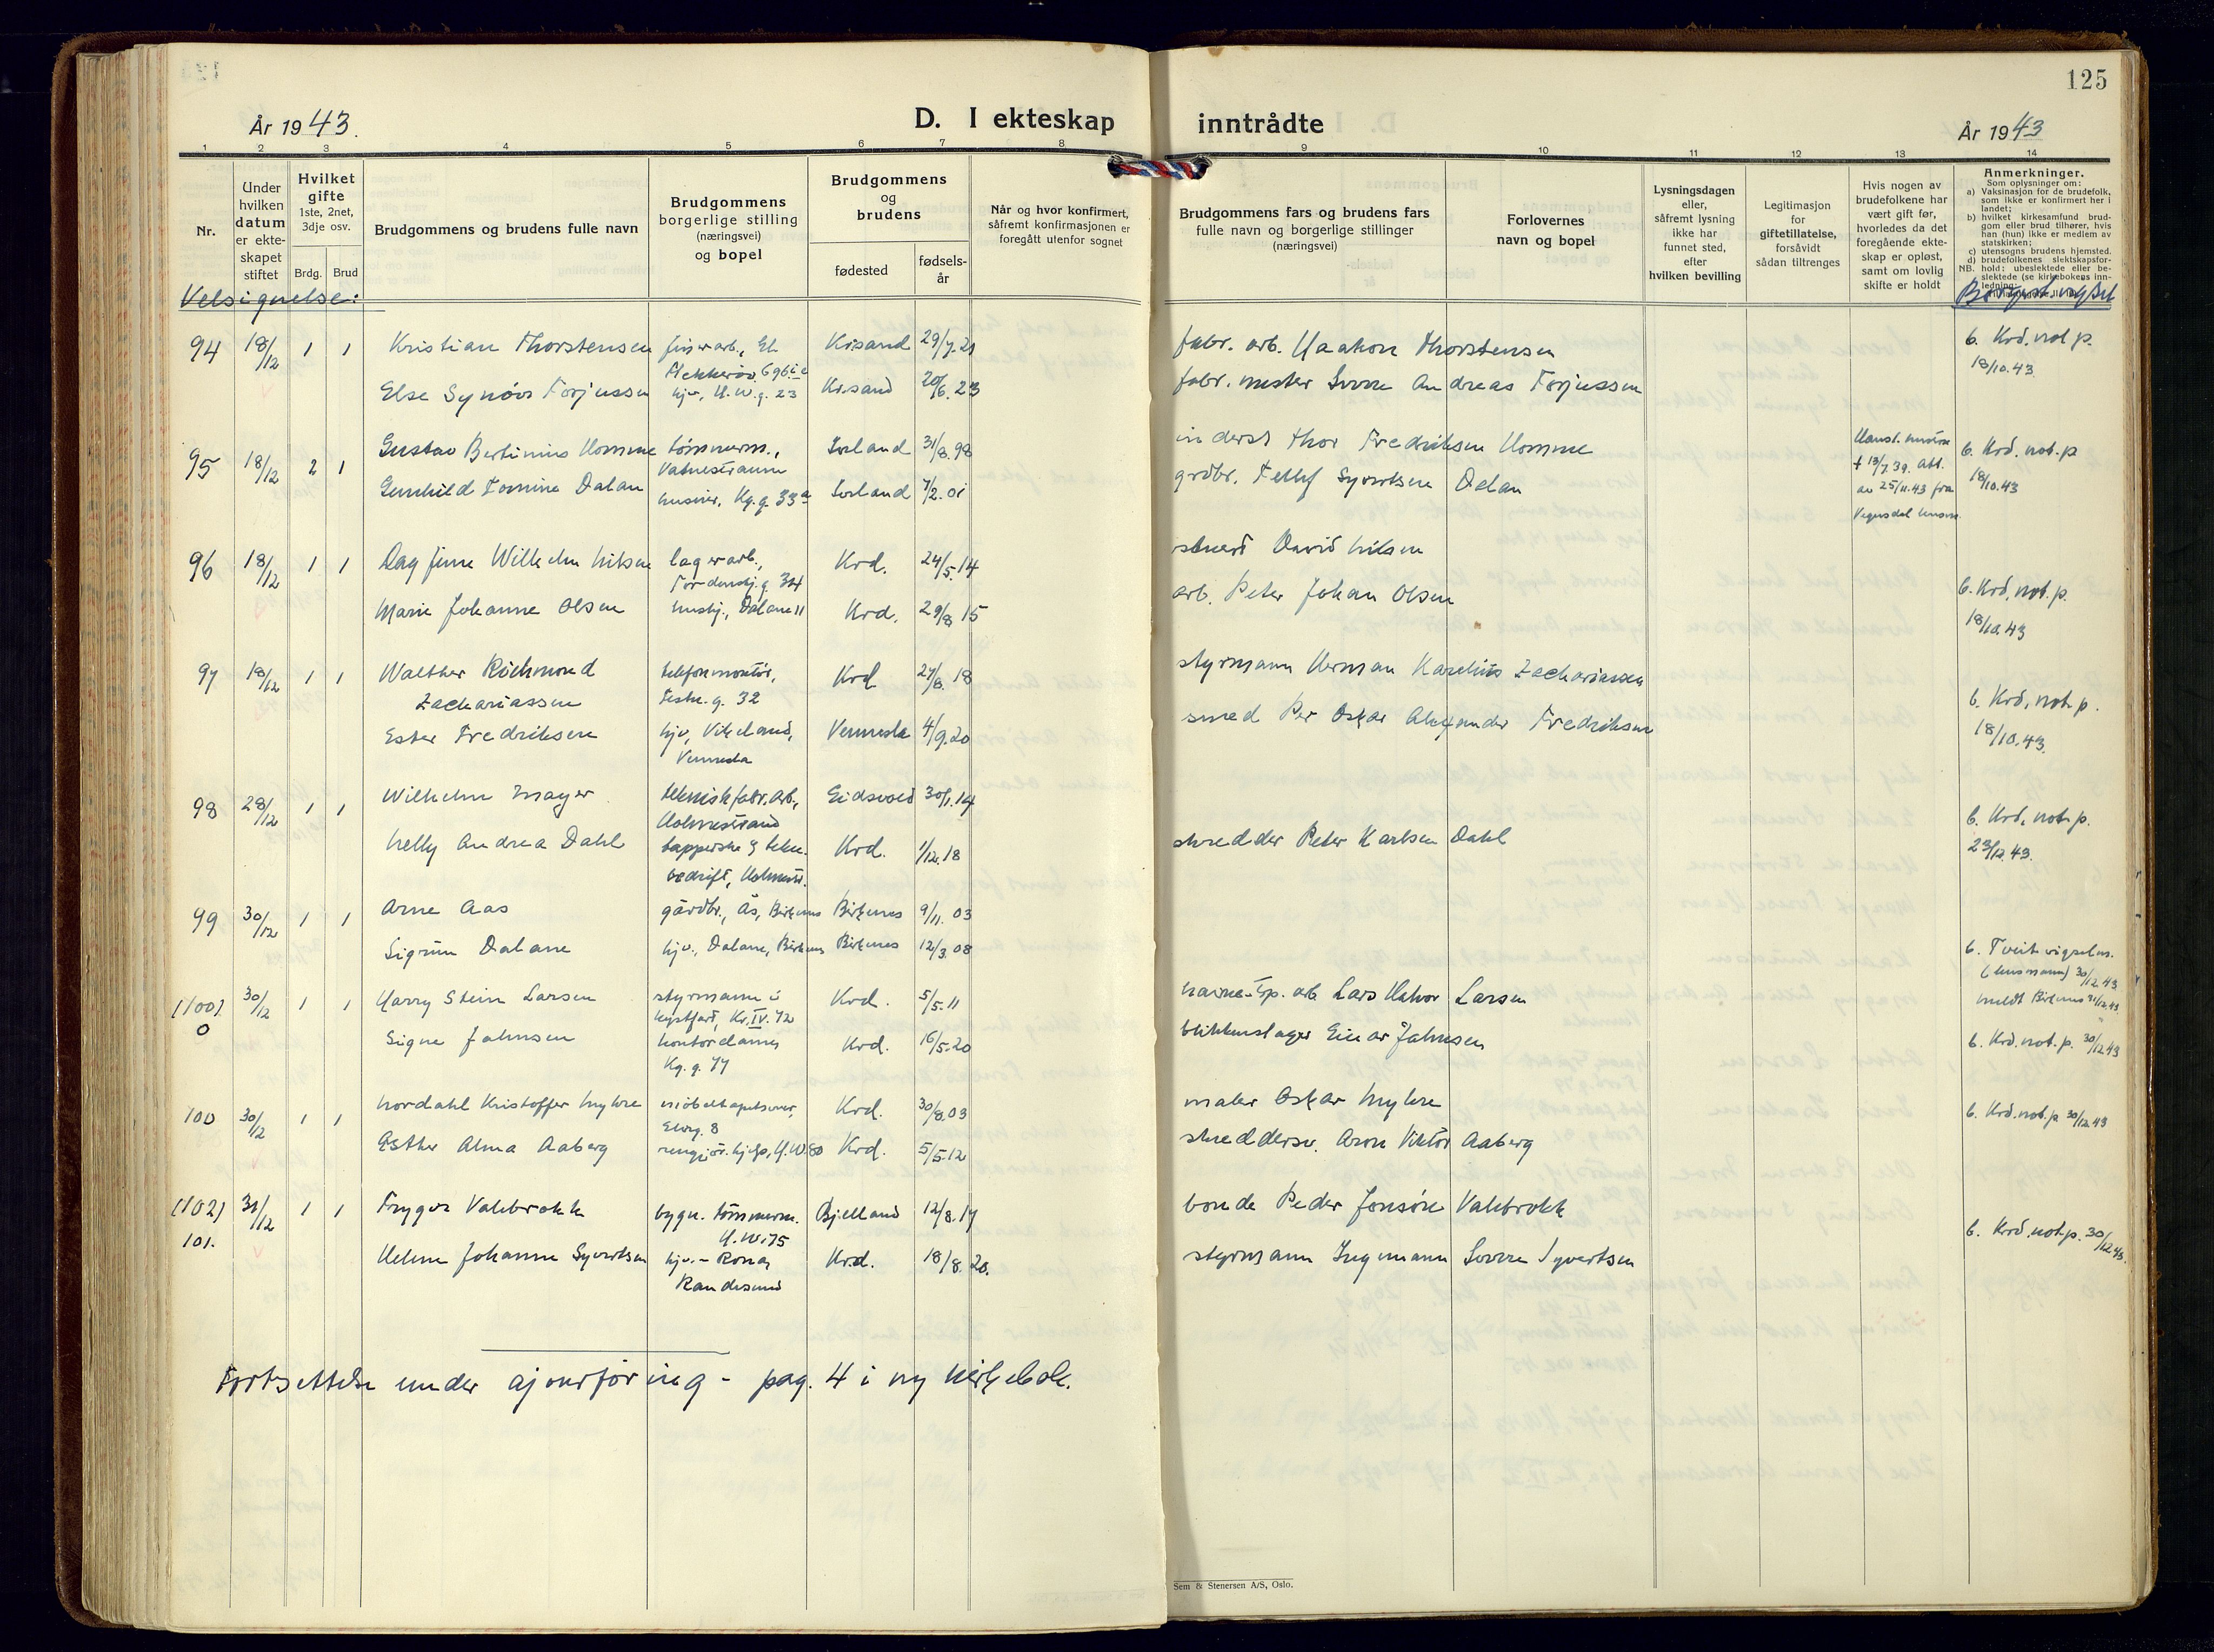 125
År 1943.
D. I ekteskap inntrådte
År 1943
1 2 3 4 5 6 7 8 9 10 11 12 13 14
Nr.
Under hvilken datum er ekteskapet stiftet
Hvilket gifte
1ste, 2net, 3dje osv.
Brdg. Brud
Brudgommens og brudens fulle navn
Brudgommens borgerlige stilling (næringsvei) og bopel
Brudgommens og brudens
fødested
fødselsår
Når og hvor konfirmert, såfremt konfirmasjonen er foregått utenfor sognet
Brudgommens fars og brudens fars fulle navn og borgerlige stillinger (næringsvei)
Forlovernes navn og bopel
Lysningsdagen eller, såfremt lysning ikke har funnet sted, efter hvilken bevilling
Legitimasjon for giftetillatelse, forsåvidt sådan tiltrenges
Hvis nogen av brudefolkene har vært gift før, hvorledes da det foregående ekteskap er opløst, samt om lovlig skifte er holdt
Anmerkninger.
Som oplysninger om:
a) Vaksinasjon for de brudefolk, som ikke er konfirmert her i landet;
b) hvilket kirkesamfund brudgom eller brud tilhører, hvis han (hun) ikke er medlem av statskirken;
c) utensogns brudens hjemsted.
d) brudefolkenes slektskapsforhold; ubeslektede eller beslektede (se kirkebokens innledning:
NB.
Velsignelse:
94 18/12 1 1 Kristian Thorstensen Kr.sand 29/7.21 fabr. arb. Haakon Thorstensen b. Krd. not p.
18/10.43
Else Synöve Torjussen hjv., H.W.g. 23 Kr.sand 20/6.23 fabr. mester Sverre Andreas Torjussen
95 18/12 2 1 Gustav Bertinius Homme tömmerm., Iveland 31/8.98 inderst Thor Fredriksen Homme b. Krd. not. p
Vatnestraum
18/10.43
Gunhild Tomine Dalan Kg.g. 33a Iveland 7/2.01 grdbr. Tellef Syvertsen Dalan
† 13/7.39. Att.
av 25/11.43 fra
Vegusdal
96 18/12 1 1 Dagfinn Wilhelm Nilsen lagerarb., Krd. 24/5.14 David Nilsen
Tordenskj.g. 34
Marie Johanne Olsen hushj., Dalane 11 Krd. 29/8 15 arb. Peter Johan Olsen b. Krd. not. p.
18/10.43
97 18/12 1 1 Walther Richmond telefonmontör, Krd 27/8.18 styrmann Herman Karelius Zachariassen
Zachariassen Festn.g. 32
Ester Fredriksen hjv, Vikeland, Vennesla 4/9.20 smed Per Oskar Alexander Fredriksen b. Krd. not. p.
Vennesla
18/10.43.
98 28/12 1 1 Wilhelm Mayer teknisk fabr.arb., Eidsvold 30/1.14
Holmestrand
Nelly Andrea Dahl tapperske Krd. 1/12.18 skredder Peter Karlsen Dahl b. Krd. not. p.
bedrift, Holmestr.
23/12.43.
99 30/12 1 1 Arne Aas gårdbr., Ås, Birkenes Birkenes 9/11.03
Sigrun Dalane hjv., Dalane, Birkenes Birkenes 12/3.08 b. Tveit
(lensmann) 30/12.43
meldt Birkenes 31/12.43
(100). 30/12 1 1 Harry Stein Larsen styrmann i Krd. 5/5.11 arb. Lars Halvor Larsen
0
kystfart, Kr.IV.72
Signe Jahnsen kontordame, Krd. 16/5.20 blikkenslager Einar Jahnsen b. Krd. not. p. 30/12.43
Kg.g. 77
100 30/12 1 1 Nordahl Kristoffer Myhre möbeltapetserer, Krd. 30/8.03 maler Oskar Myhre b. Krd. not. p 30/12.43
Elvg. 8
Esther Alma Aaberg rengjör. hjelp, H.W.80 Krd. 5/5.12 skreddersv. Aron Viktor Aaberg
(102) 31/12 1 1 Trygve Valebrokk bygn. tömmerm. Bjelland 12/8.17 bonde Peder Jonsöne Valebrokk
101.
H.W.75
Helene Johanne Syvertsen hjv. - Rona, Kr.d. 18/8.20. styrmann Ingmann Sverre Syvertsen b. Krd. not. p. 30/12.43.
Randesund
Fortsettelse under ajourföring - pag. 4 i ny kirkebok.
Sem & Stenersen A/S, Oslo.